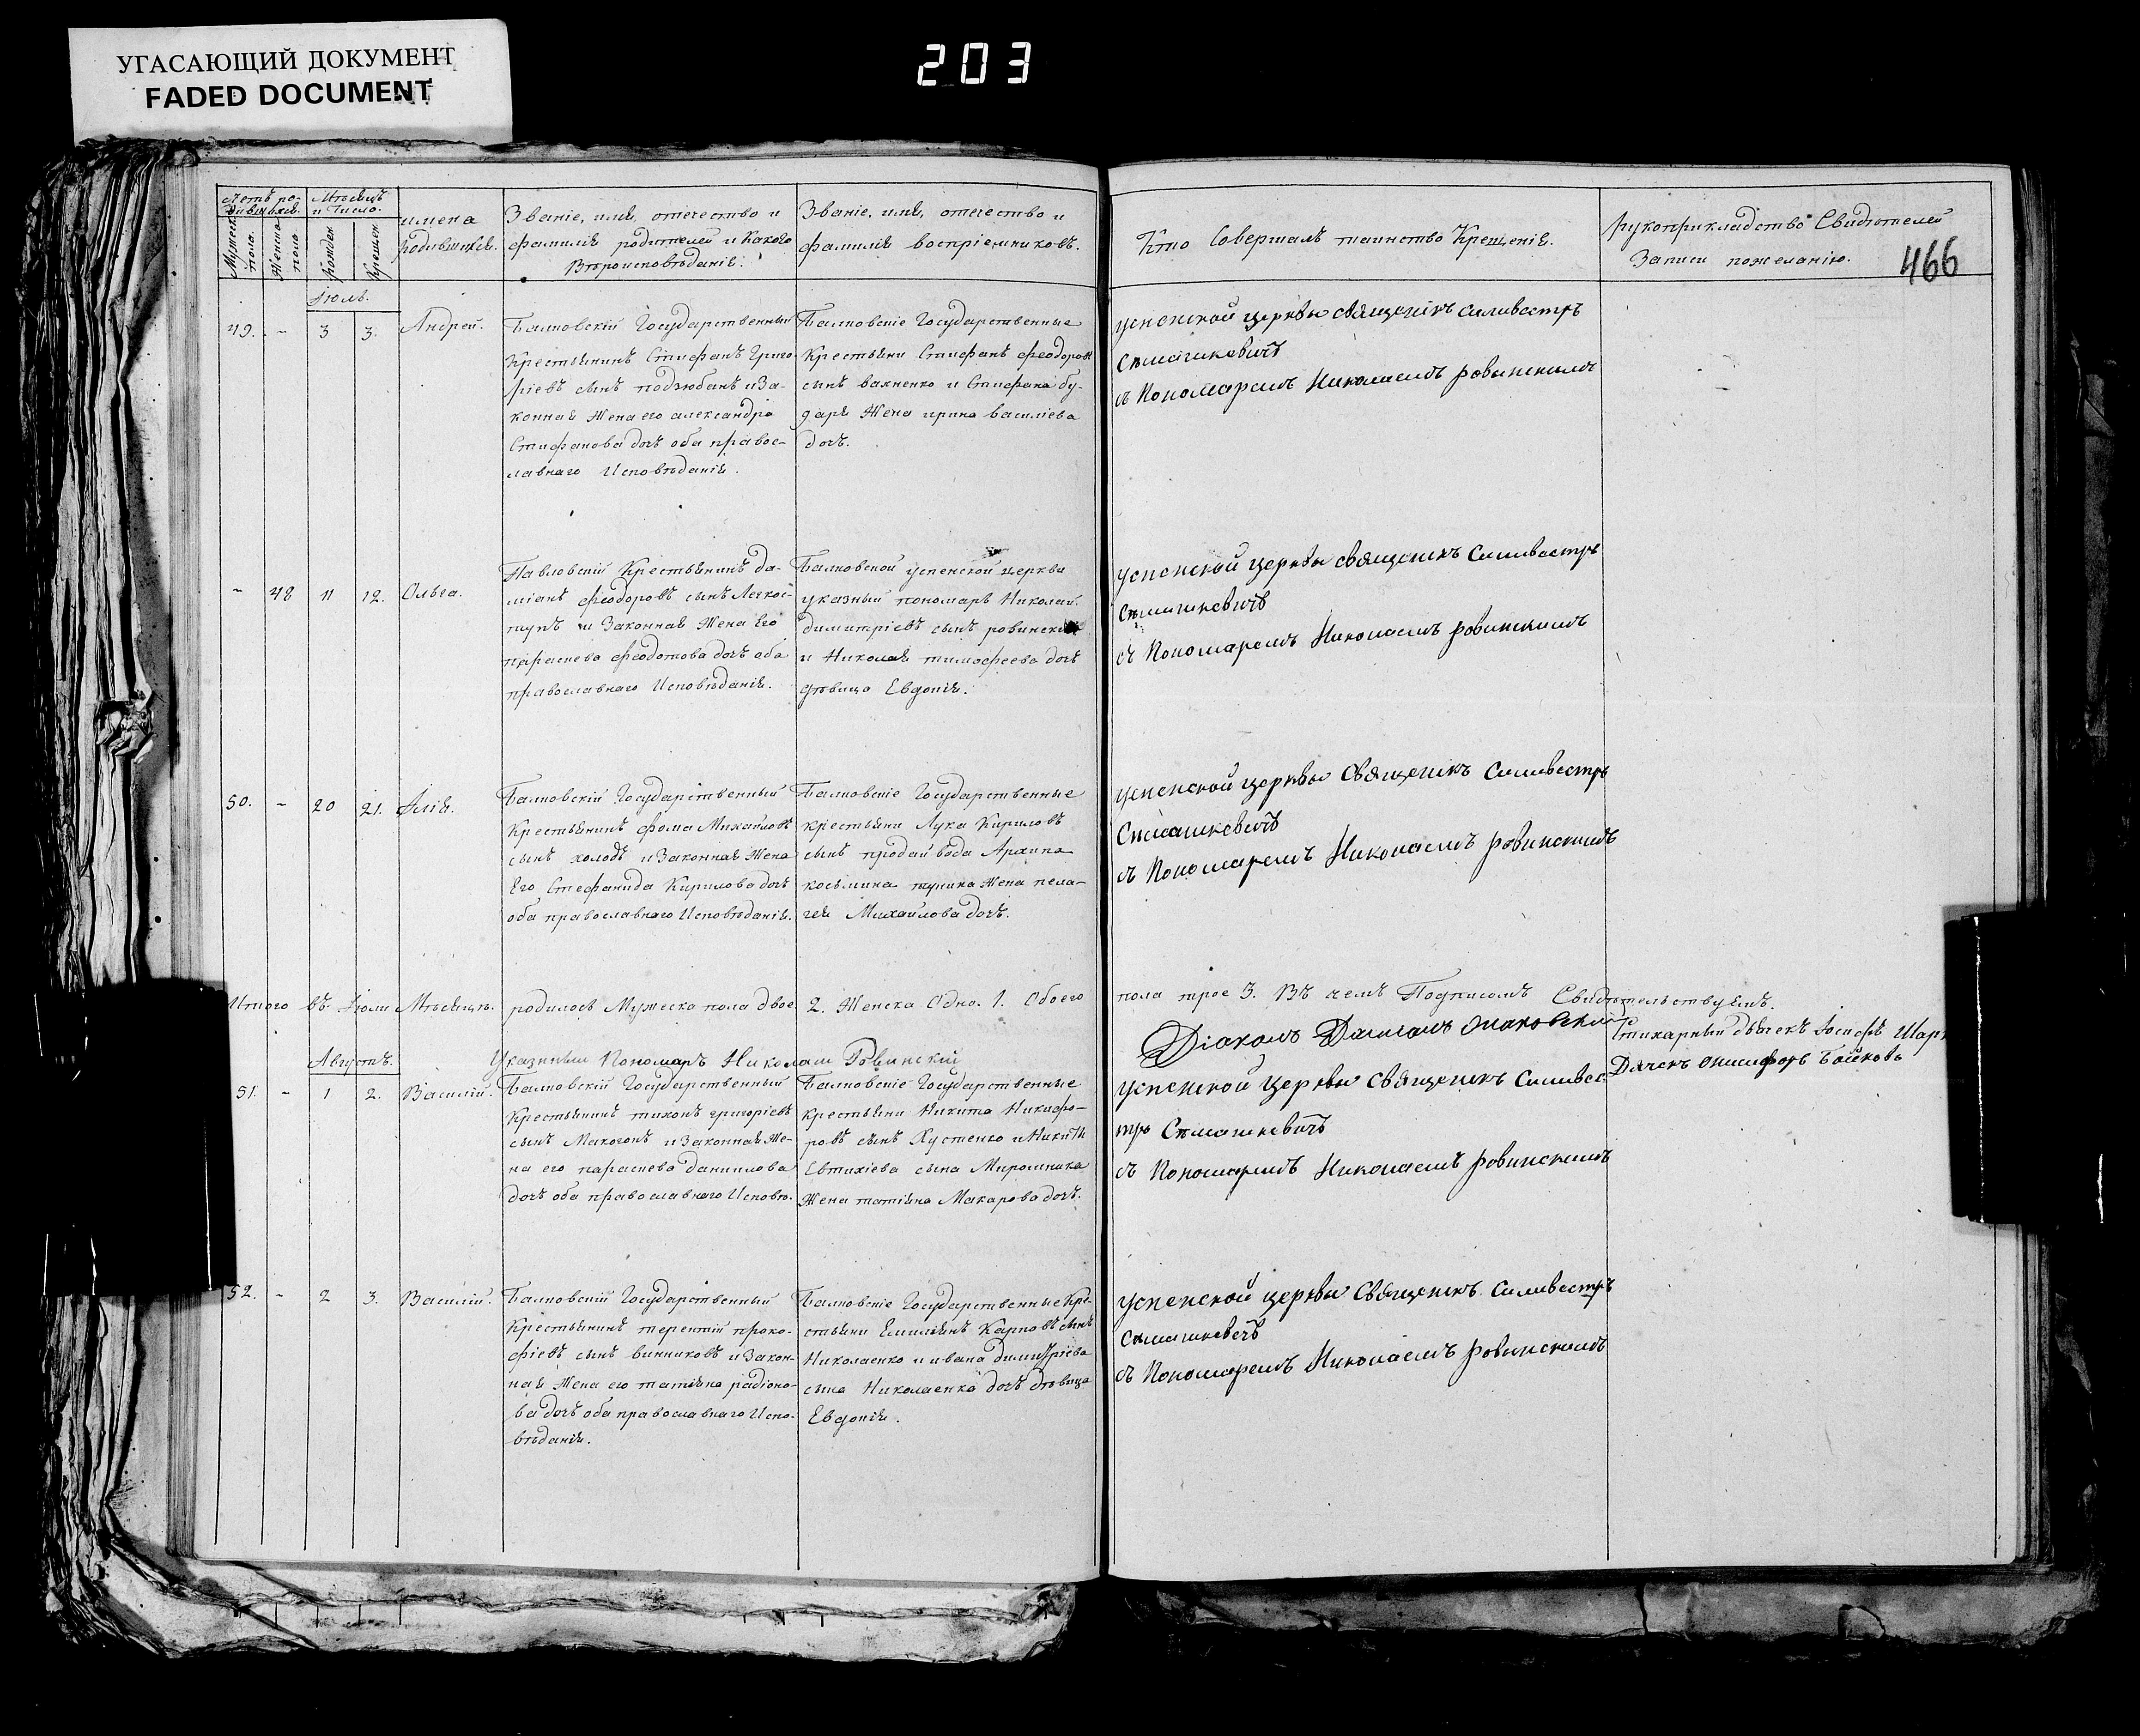 УГАСАЮЩИЙ ДОКУМЕНТ
FADED DOCUMENT
203
466
Счетъ ро-
дившихся.
Мужеска
пола.
Женска
пола
Мѣсяцъ
и Число.
рожден
крещен
имена
родившихся.
Званіе, имя, отечество и
фамилія родителей и Какого
Вѣроисповѣданія.
Званіе, имя, отечество и
фамилія воспріемниковъ.
Кто Совершалъ таинство Крещенія.
рукоприкладство Свидѣтелей
Записи пожеланію.
Іюль.
49. - 3 3. Андрей.
Балковскій Государственный
Крестьянинъ Стифанъ Григо-
ріевъ сынъ подзюбанъ и За-
конная Жена его александра
Стифанова дочь оба правос-
лавнаго Исповѣданія.
Балковскіе Государственные
Крестьяни Стифанъ феодоровъ
сынъ вакненко и Стифана бу-
даря Жена ирина василіева
дочь.
успенской церквы священикъ Силивестръ
Сѣмашкевичъ
съ Пономаремъ Николаемъ ровинскимъ
- 48 11 12. Ольга.
Павловскій Крестьянинъ да-
міанъ феодоровъ сынъ Легкос-
тупъ и Законная Жена Его
параскева феодотова дочь оба
православнаго Исповѣданія.
Балковской успенской церкви
указный пономарь Николай
димитріевъ сынъ ровинскій
и Николая тимофеева дочь
дѣвица Евдокія.
успенской церквы священикъ Силивестръ
Сѣмашкевичъ
съ Пономаремъ Николаемъ ровинскимъ
50. - 20 21. Илія.
Балковскій Государственный
Крестьянинъ фома Михайловъ
сынъ холодъ и Законная Жена
Его Стефанида Кирилова дочь
оба православнаго Исповѣданія.
Балковскіе Государственные
крестьяни Лука Кириловъ
сынъ продайвода Архипа
косьмина тупика Жена пела-
гея Михайлова дочь.
успенской церквы Священикъ Силивестръ
Сѣмашкевичъ
съ Пономаремъ Николаемъ ровинскимъ
Итого въ Іюли Мѣсяцѣ. родилось Мужеска пола двое 2. Женска Одна. 1. Обоего
пола трое 3. Въ чемъ Подписомъ Свидѣтельствуемъ.
Указный Пономарь Николай Ровинскій
Діаконъ
Стихарный дьячекъ Іосифъ
Дячекъ Онисифоръ Бойковъ
Августъ.
51. - 1 2. Василій.
Балковскій Государственный
Крестьянинъ тихонъ григоріевъ
сынъ Макогонъ и Законная Же-
на его параскева даниилова
дочь оба православнаго Исповѣ.
Балковскіе Государственные
крестьяни Никита Никифо-
ровъ сынъ Хустенко и Никиты
Евтихіева сына Мирошника
Жена татіана Макарова дочь.
успенской церквы священикъ Силивес-
тръ Сѣмашкевичъ
съ Пономаремъ Николаемъ ровинскимъ
52. - 2 3. Василій.
Балковскій Государственный
Крестьянинъ терентій проко-
фіевъ сынъ винниковъ и Закон-
ная Жена его татіана радіоно-
ва дочь оба православнаго Испо-
вѣданія.
Балковскіе Государственные Кре-
стьяни Емиліянъ Карповъ сынъ
Николаенко и ивана димитріева
сына Николаенка дочь дѣвица
Евдокія.
успенской церквы Священикъ Силивестръ
Сѣмашкевичъ
съ Пономаремъ Николаемъ ровинскимъ